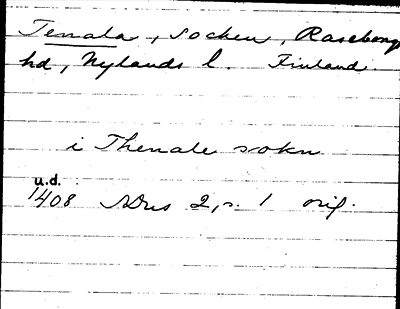 Tenala, socken, Raseborg
hd, Nylands l. Finland.
i Thenale sokn
u.d.
1408 NDns 2, s. 1 orig.